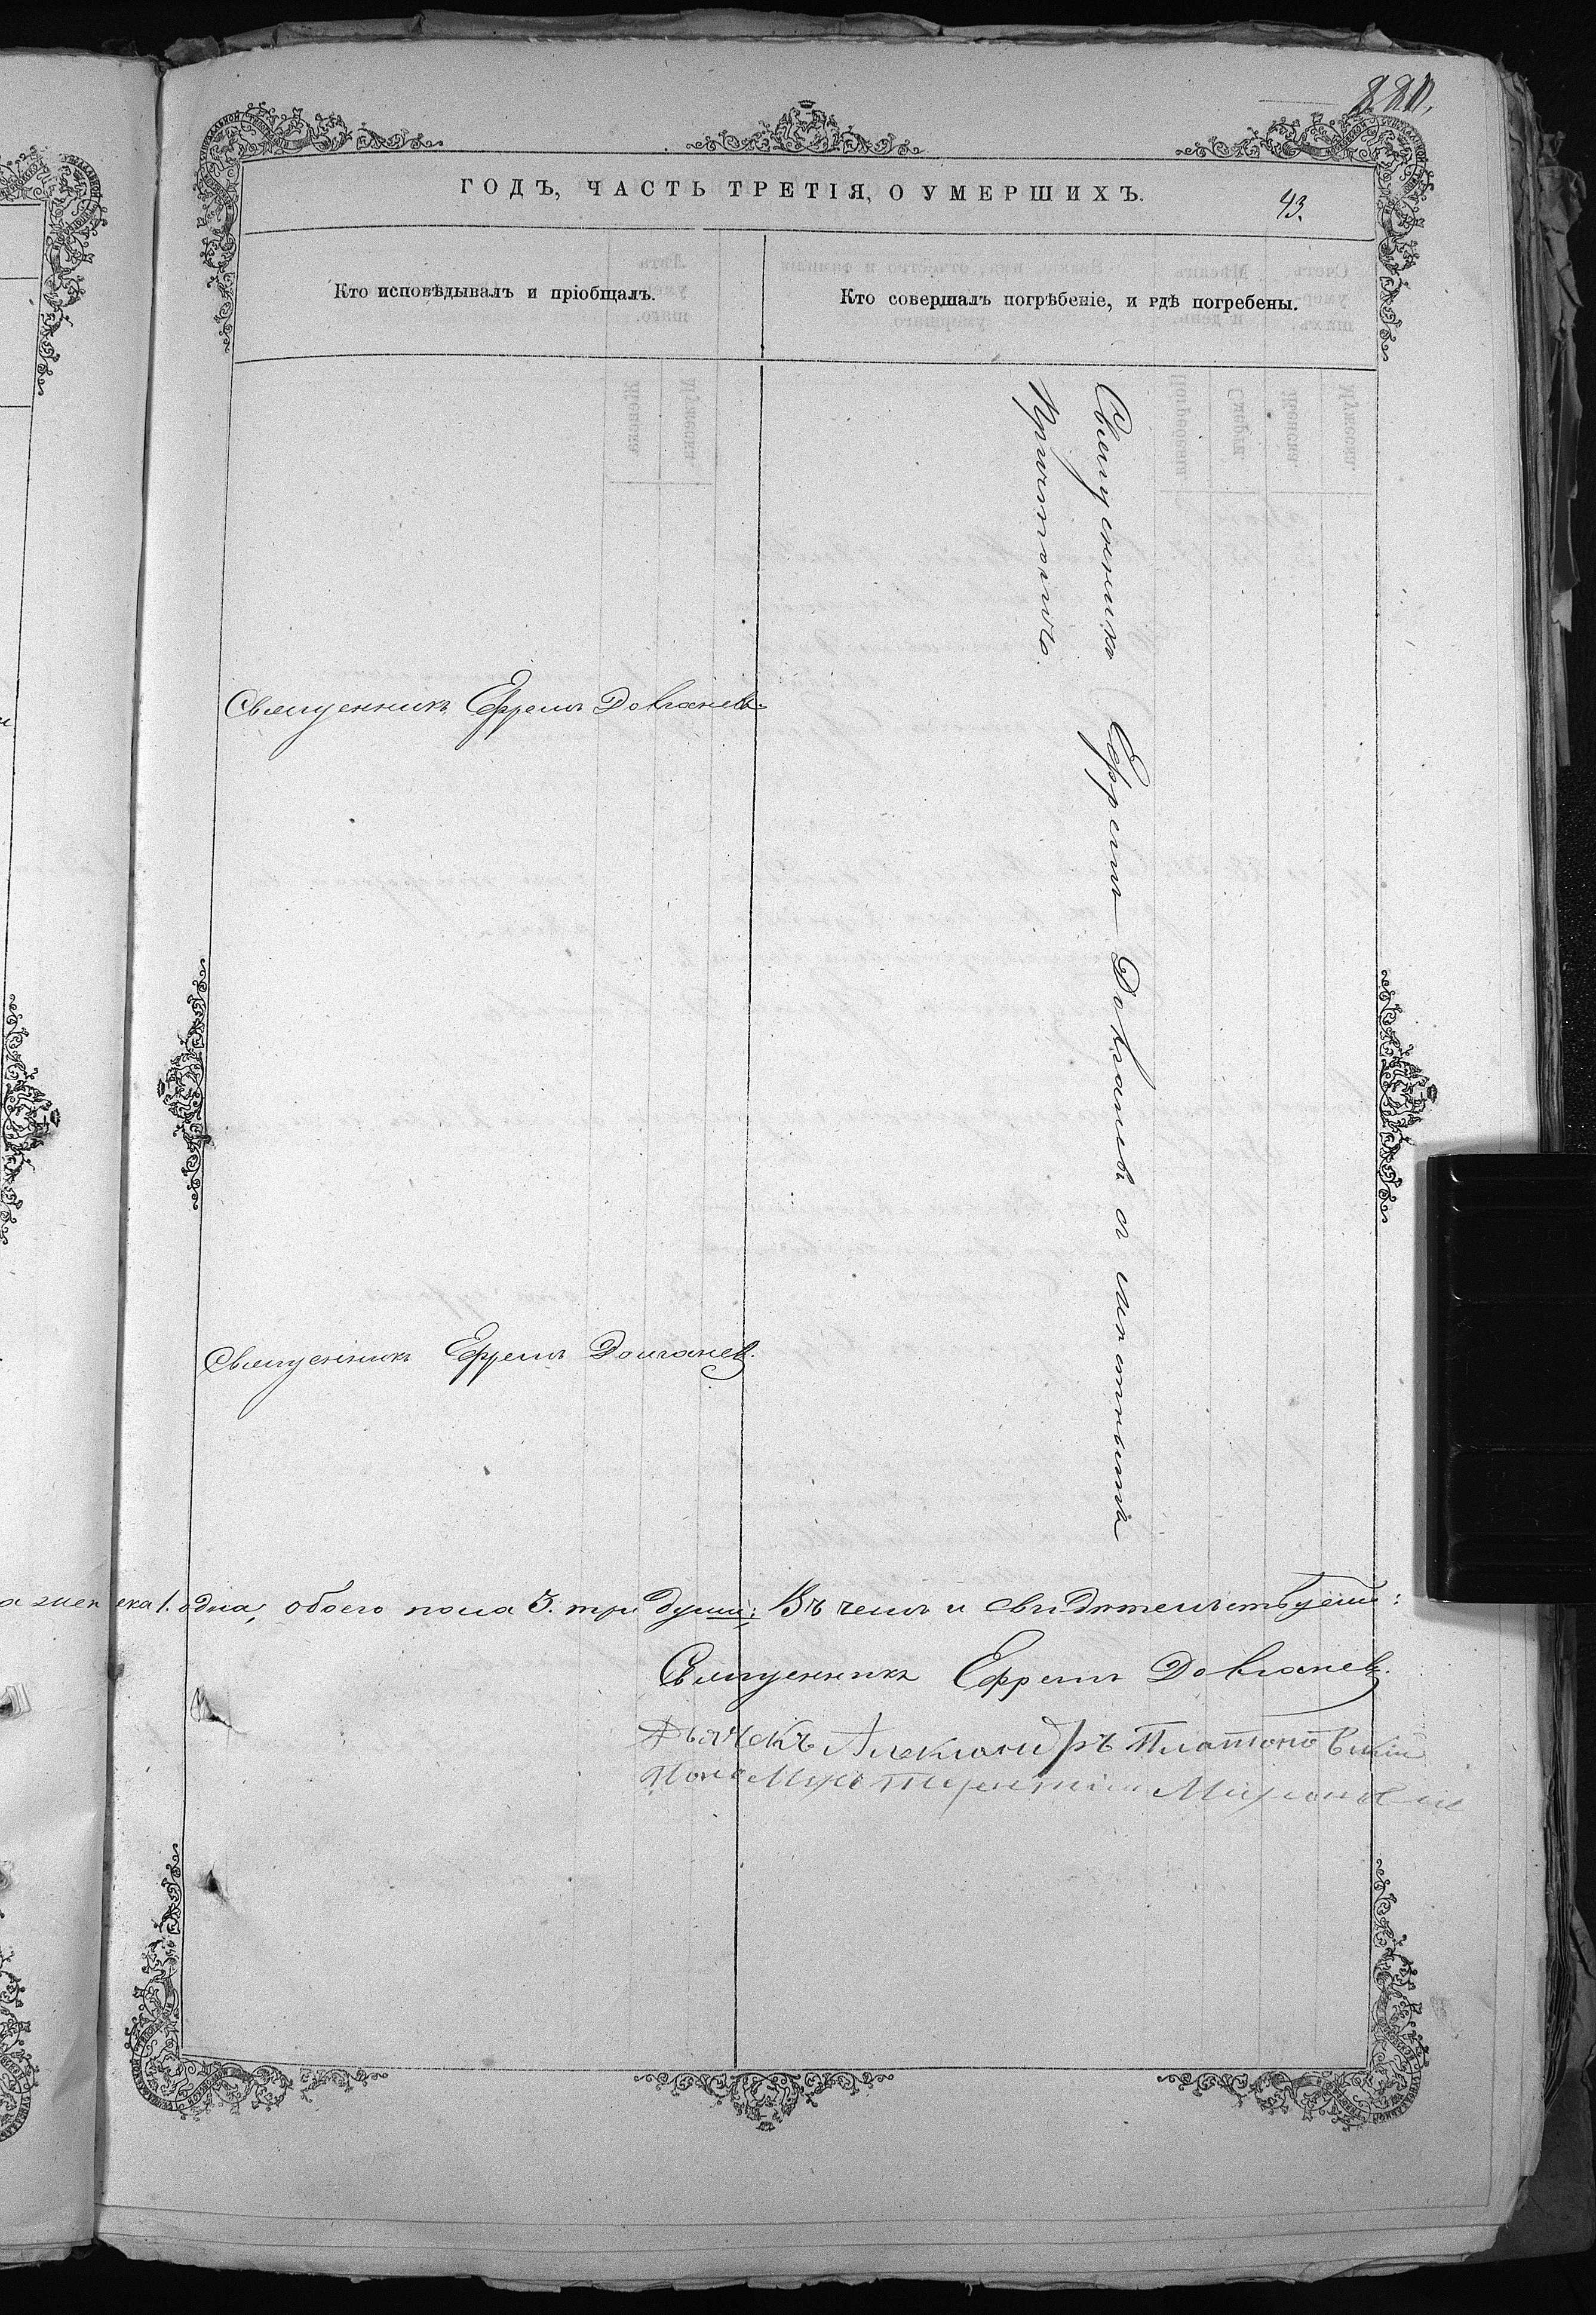 880.
ГОДЪ, ЧАСТЬ ТРЕТІЯ, О УМЕРШИХЪ.
43.
Кто исповѣдывалъ и пріобщалъ.
Кто совершалъ погрѣбеніе, и гдѣ погребены.
Священникъ Ефремъ Довганевъ и мѣстнымъ
Причтомъ.
Священникъ Ефремъ Довганевъ.
Священникъ Ефремъ Долганевъ.
женска 1. одна, обоего пола 3. три души: Въ чемъ и свидѣтельствуемъ:
Священникъ Ефремъ Довганевъ.
Дьячекъ Александръ Платоновскій
Пономарь Терентій